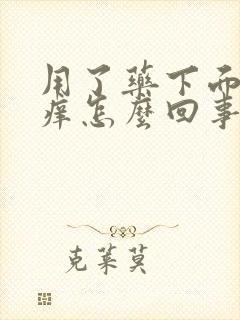 用了药下而
痒怎麼回事
克莱莫